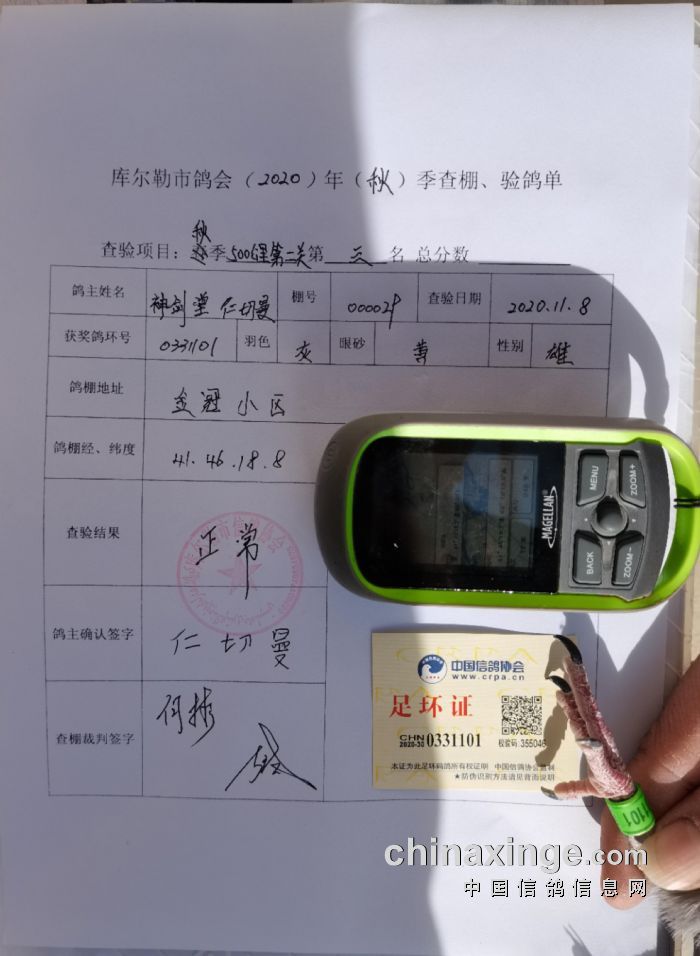 库尔勒市鸽会（2020）年（秋）季查棚、验鸽单
秋
查验项目：季500公里第二关第 三 名 总分数
鸽主姓名 神剑堂 仁切曼 棚号 000029 查验日期 2020.11.8
获奖鸽环号 0331101 羽色 灰 眼砂 黄 性别 雄
鸽棚地址 金冠小区
鸽棚经、纬度 41.46.18.8
查验结果 正常
鸽主确认签字 仁切曼
查棚裁判签字 何彬
MAGELLAN
MENU
ZOOM+
BACK
ZOOM-
中国信鸽协会
www.crpa.cn
足环证
CHN
2020-30 0331101
校验码: 355046
本证为此足环码鸽所有权证明 中国信鸽协会监制
★防伪识别方法请见背面说明
1101
chinaxinge.com
中国信鸽信息网